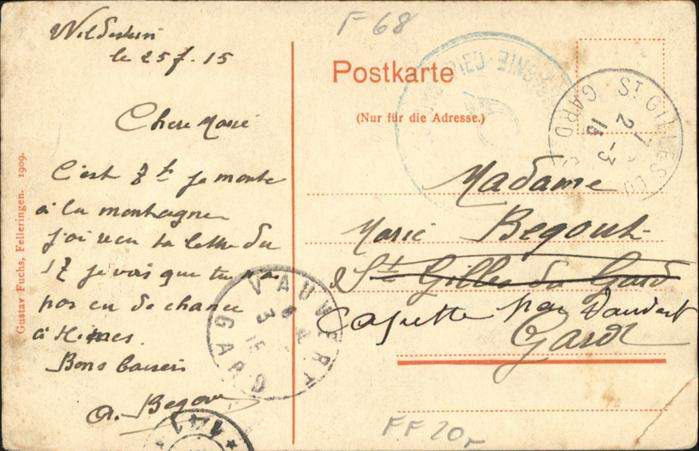 F 68
Wildenstein
le 25 f. 15
Chere Marie
C'est 7 h je monte
à la montagne
j'ai reçu ta lettre du
17 je vois que tu n'a
pas eu de chance
à Nimes.
Bons baisers
A. Begou
Gustav Fuchs, Felleringen. 1909.
Postkarte
(Nur für die Adresse.)
ST GILLES DU
GARD
2
3
Madame
Marie Begout
St Gilles du Gard
par Vauvert
Gard
VAUVERT
GARD
3
FF 20